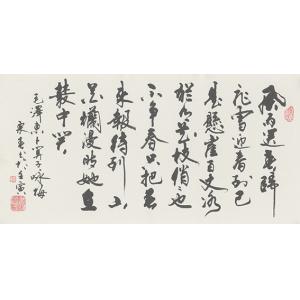 風雨送春歸
飛雪迎春到已
是懸崖百丈冰
猶有花枝俏也
不爭春只把春
來報待到山
花爛漫時她在
叢中笑
毛澤東卜算子詠梅
壬寅